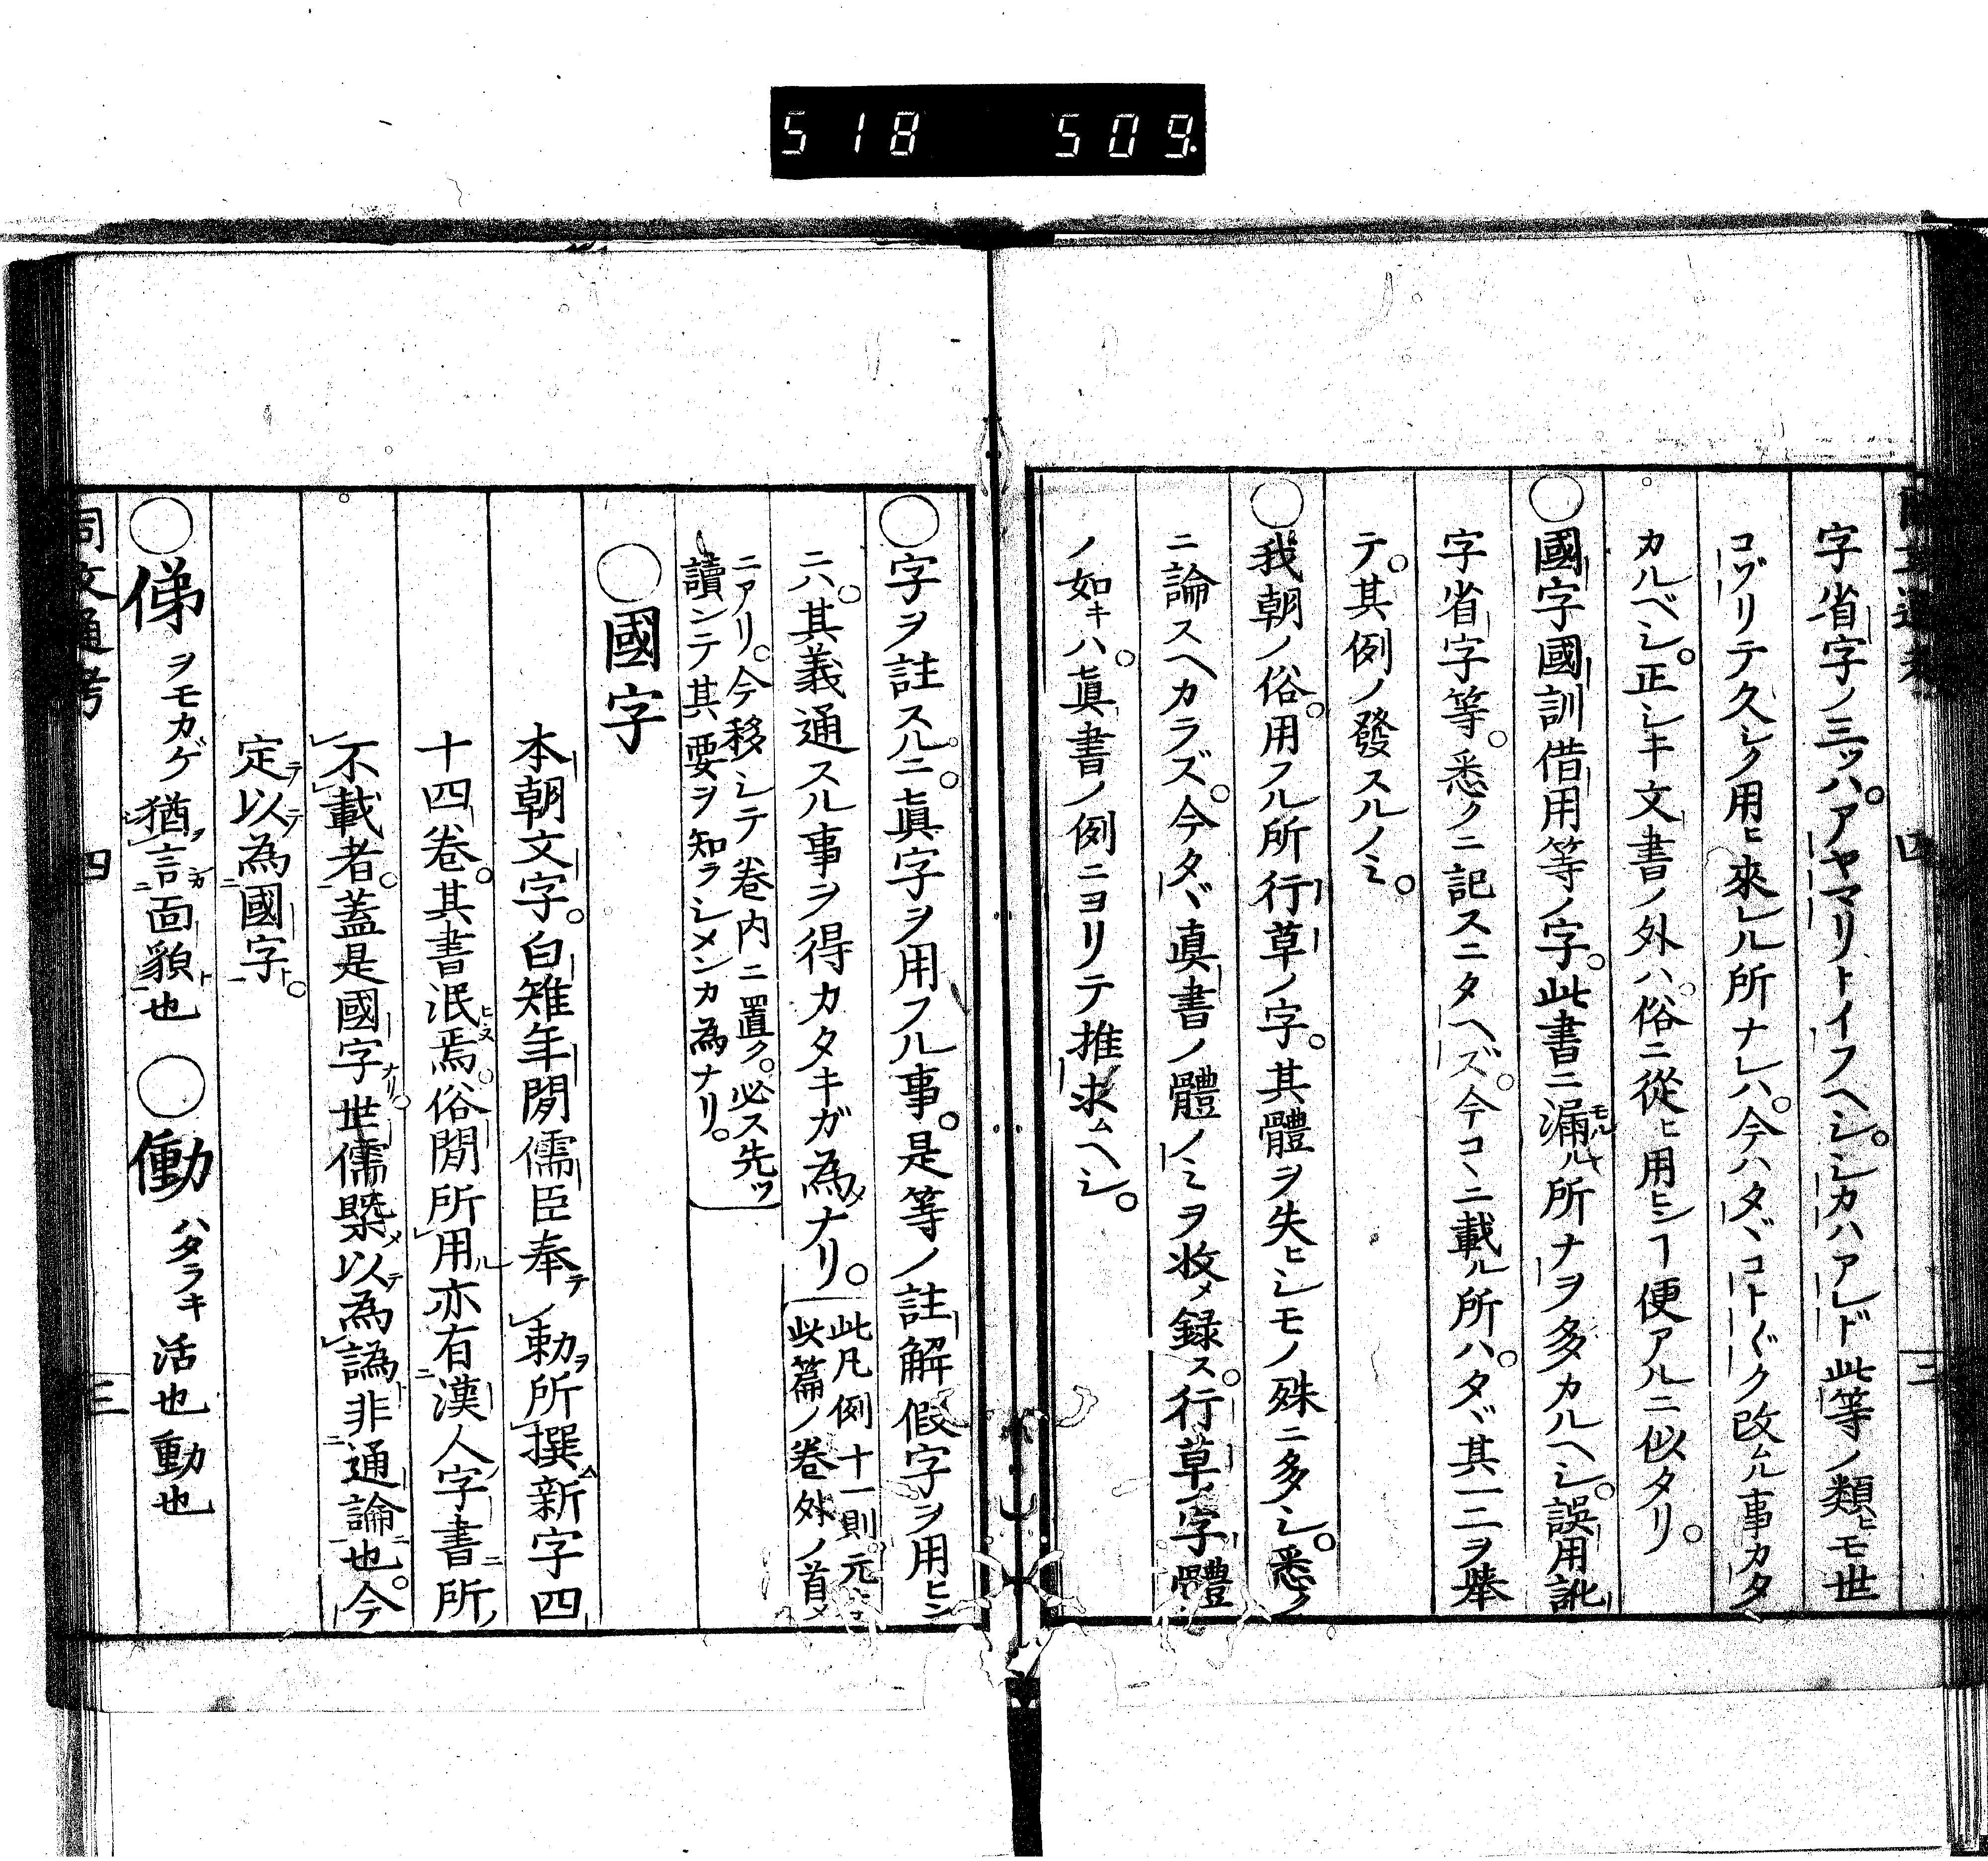 518 509
同文通考 四 三
字省字ノ三ツハ。アヤマリトイフヘシ。シカハアレド此等ノ類ヒモ世
コゾリテ久シク用ヒ來ル所ナレハ。今ハタヾコト〴〵ク改ムル事カタ
カルベシ。正シキ文書ノ外ハ。俗ニ從ヒ用ヒンヿ便アルニ似タリ。
◯國字國訓借用等ノ字。此書ニ漏ル所ナヲ多カルヘシ。誤用訛
字省字等。悉クニ記スニタヘズ。今コヽニ載ル所ハ。タヾ其一二ヲ擧
テ。其例ノ發スルノミ。
◯我朝ノ俗。用フル所行草ノ字。其體ヲ失ヒシモノ殊ニ多シ。悉ク
ニ論スヘカラズ。今タヾ眞書ノ體ノミヲ收メ録ス。行草ノ字體
ノ如キハ。眞書ノ例ニヨリテ推求ムヘシ。
◯字ヲ註スルニ。眞字ヲ用フル事。是等ノ註解假字ヲ用ヒン
ニハ。其義通スル事ヲ得カタキガ為メナリ。
此凡例十一則。元ト
此篇ノ卷外ノ首メ
ニアリ。今移シテ卷内ニ置ク。必ス先ツ
讀ンテ其要ヲ知ラシメンカ為ナリ。
◯國字
本朝文字。白雉年間儒臣奉テ勅ヲ所撰新字四
十四卷。其書泯焉。俗間所用ル亦有漢人字書ニ所ノ
不載者。蓋是國字ナリ。世儒槩メ以テ為譌ト非通論ニ也。今
定テ以テ為國字ト。
◯俤 ヲモカゲ 猶言面貌ト也 ◯働 ハタラキ 活也動也
同文通考 四 三